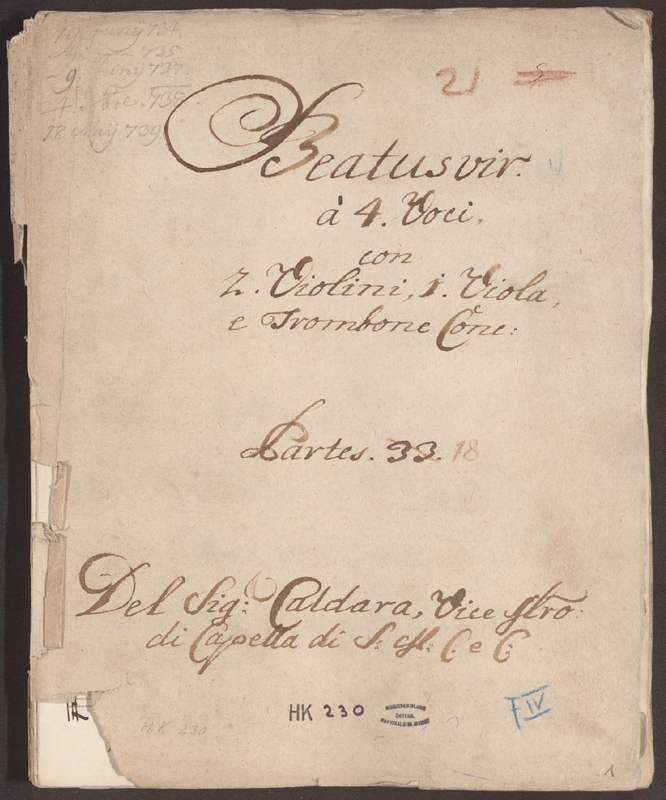 19. Juny 734.
735
9. Juny 737.
24. 8bre. 738.
18 Maij 739
21
Beatus vir.
à 4. Voci,
con
2. Violini, 1. Viola,
e Trombone Conc:
Partes. 33. 18
Del Sig: Caldara, Vice Mro:
di Capella di S: M: C: e C:
HK 230
HK 230
IV
1